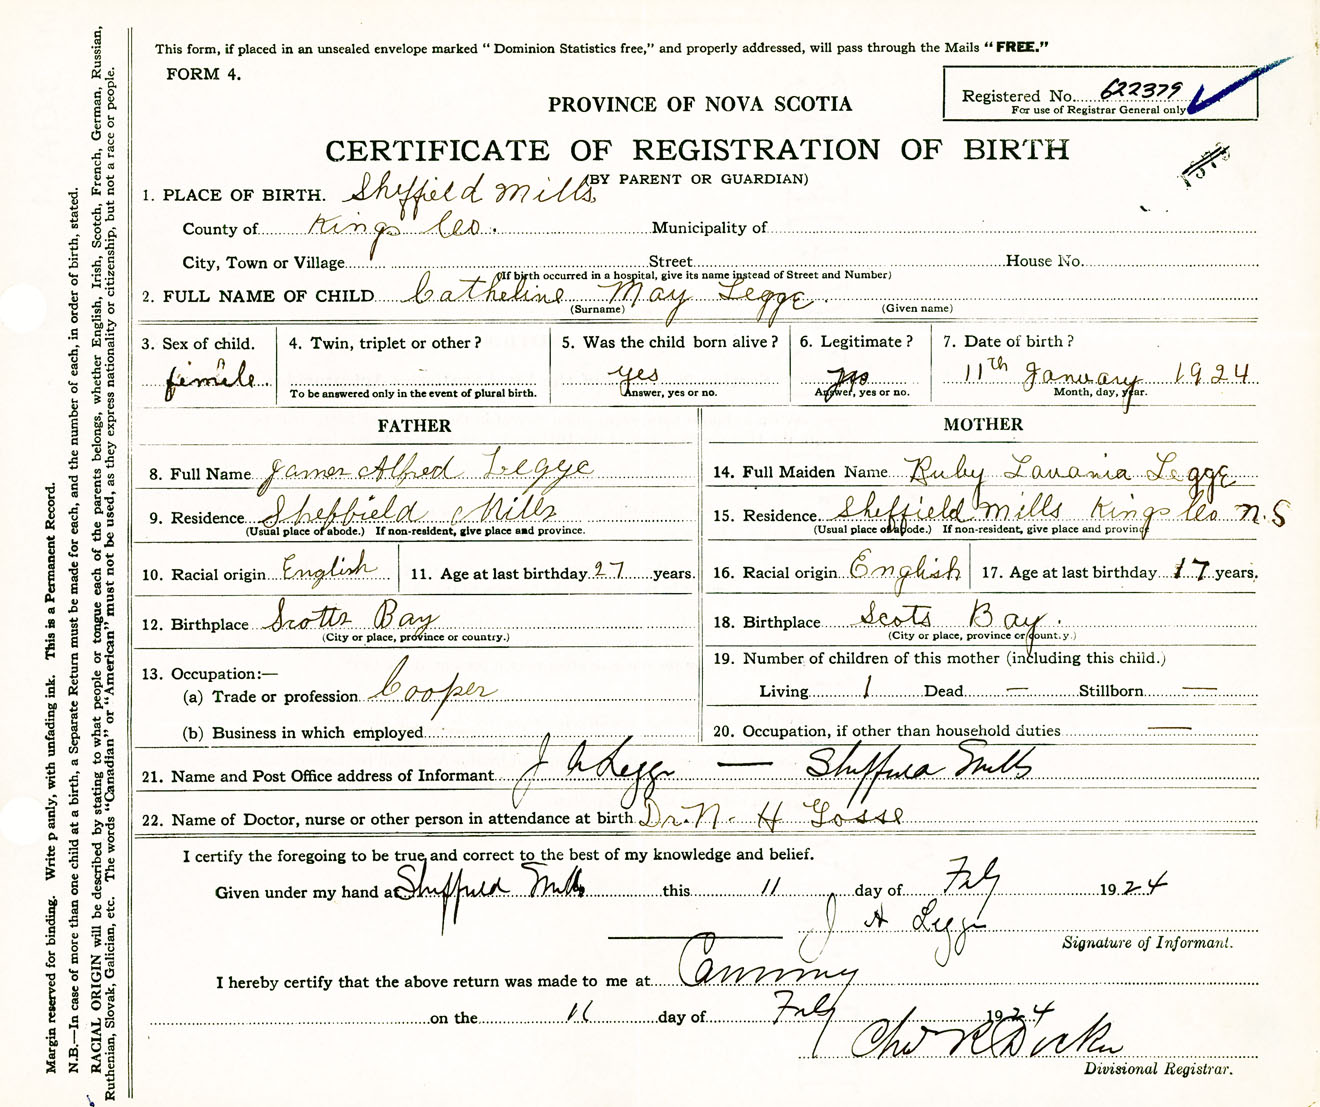 This form, if placed in an unsealed envelope marked "Dominion Statistics free," and properly addressed, will pass through the Mails "FREE."
FORM 4.
Registered No. 622379
For use of Registrar General only
PROVINCE OF NOVA SCOTIA
CERTIFICATE OF REGISTRATION OF BIRTH
(BY PARENT OR GUARDIAN)
1. PLACE OF BIRTH. Sheffield Mills
County of Kings Co. Municipality of
City, Town or Village Street House No.
(If birth occurred in a hospital, give its name instead of Street and Number)
2. FULL NAME OF CHILD Catheline May Legge
(Surname) (Given name)
3. Sex of child. 4. Twin, triplet or other? 5. Was the child born alive? 6. Legitimate? 7. Date of birth?
female yes 11th January 1924
To be answered only in the event of plural birth. Answer, yes or no. Answer, yes or no. Month, day, year.
FATHER MOTHER
8. Full Name James Alfred Legge 14. Full Maiden Name Ruby Lavania Legge
9. Residence Sheffield Mills 15. Residence Sheffield Mills Kings Co N.S
(Usual place of abode.) If non-resident, give place and province. (Usual place of abode.) If non-resident, give place and province
10. Racial origin English 11. Age at last birthday 27 years. 16. Racial origin English 17. Age at last birthday 17 years.
12. Birthplace Scotts Bay 18. Birthplace Scots Bay.
(City or place, province or country.) (City or place, province or country.)
13. Occupation:— 19. Number of children of this mother (including this child.)
(a) Trade or profession Cooper Living 1 Dead — Stillborn —
(b) Business in which employed 20. Occupation, if other than household duties —
21. Name and Post Office address of Informant J A Legge — Sheffield Mills
22. Name of Doctor, nurse or other person in attendance at birth Dr. N. H Gosse
I certify the foregoing to be true and correct to the best of my knowledge and belief.
Given under my hand at Sheffield Mills this 11 day of Feby 1924
J A Legge
Signature of Informant.
I hereby certify that the above return was made to me at Canning
on the 11 day of Feby 1924
Chas R
Divisional Registrar.
Margin reserved for binding. Write plainly, with unfading ink. This is a Permanent Record.
N.B.—In case of more than one child at a birth, a Separate Return must be made for each, and the number of each, in order of birth, stated.
RACIAL ORIGIN will be described by stating to what people or tongue each of the parents belongs, whether English, Irish, Scotch, French, German, Russian,
Ruthenian, Slovak, Galician, etc. The words "Canadian" or "American" must not be used, as they express nationality or citizenship, but not a race or people.